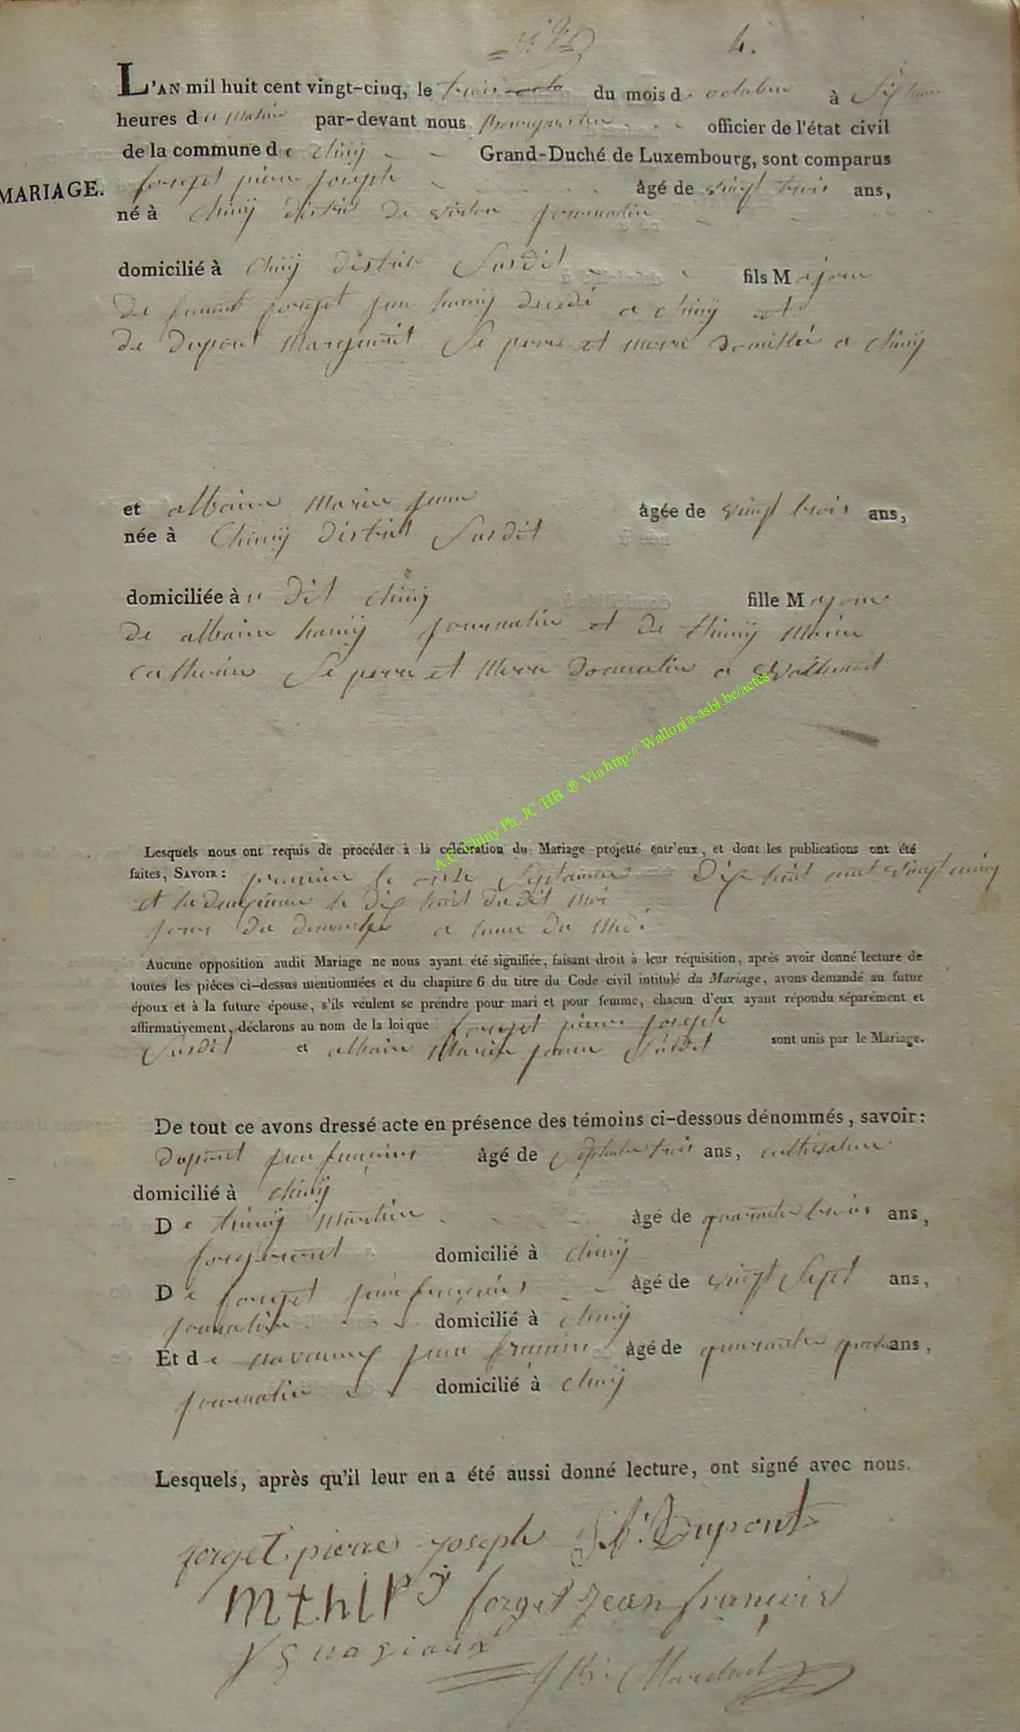 4.
L'AN mil huit cent vingt-cinq, le trois octo du mois d'octobre à Sept
heures du matin par-devant nous Bourguestre officier de l'état civil
de la commune de chiny Grand-Duché de Luxembourg, sont comparus
MARIAGE.
forget piere Joseph âgé de vingt trois ans,
né à Chiny district de virton journalin
domicilié à Chiny district Susdit fils Majeur
de forget jean decedé a chiny et
de Dupont Marguerit Se pere et mere domillié a Chiny
et albain Marie âgée de vingt trois ans,
née à Chiny district Susdit
domiciliée à dit chiny fille Majeur
de albain journalin et de thiry Marie
Catherine Se pere et Mere
Lesquels nous ont requis de procéder à la célébration du Mariage projetté entr'eux, et dont les publications ont été
faites, SAVOIR : premier le onze Septembre Dix huit cent vingt cinq
et la deuxieme le dix huit dudit moi
jour du dimanche a heure du Midi
Aucune opposition audit Mariage ne nous ayant été signifiée, faisant droit à leur réquisition, après avoir donné lecture de
toutes les pièces ci-dessus mentionnées et du chapitre 6 du titre du Code civil intitulé du Mariage, avons demandé au futur
époux et à la future épouse, s'ils veulent se prendre pour mari et pour femme, chacun d'eux ayant répondu séparément et
affirmativement, déclarons au nom de la loi que forget piere Joseph
Susdit et albain Marie Susdit sont unis par le Mariage.
De tout ce avons dressé acte en présence des témoins ci-dessous dénommés, savoir :
dupont jean françois âgé de Septante trois ans, cultivateur
domicilié à chiny
De thiry Martin âgé de quarante trois ans,
forgeront domicilié à chiny
De forget jean françois âgé de vingt Sept ans,
journalin domicilié à chiny
Et de jean âgé de quarante ans,
journalin domicilié à chiny
Lesquels, après qu'il leur en a été aussi donné lecture, ont signé avec nous.
forget pierre joseph J. f. Dupont
forget jean françois
A.C. Chiny Ph. JC/HB ® Via http:// Wallonia-asbl.be/actes